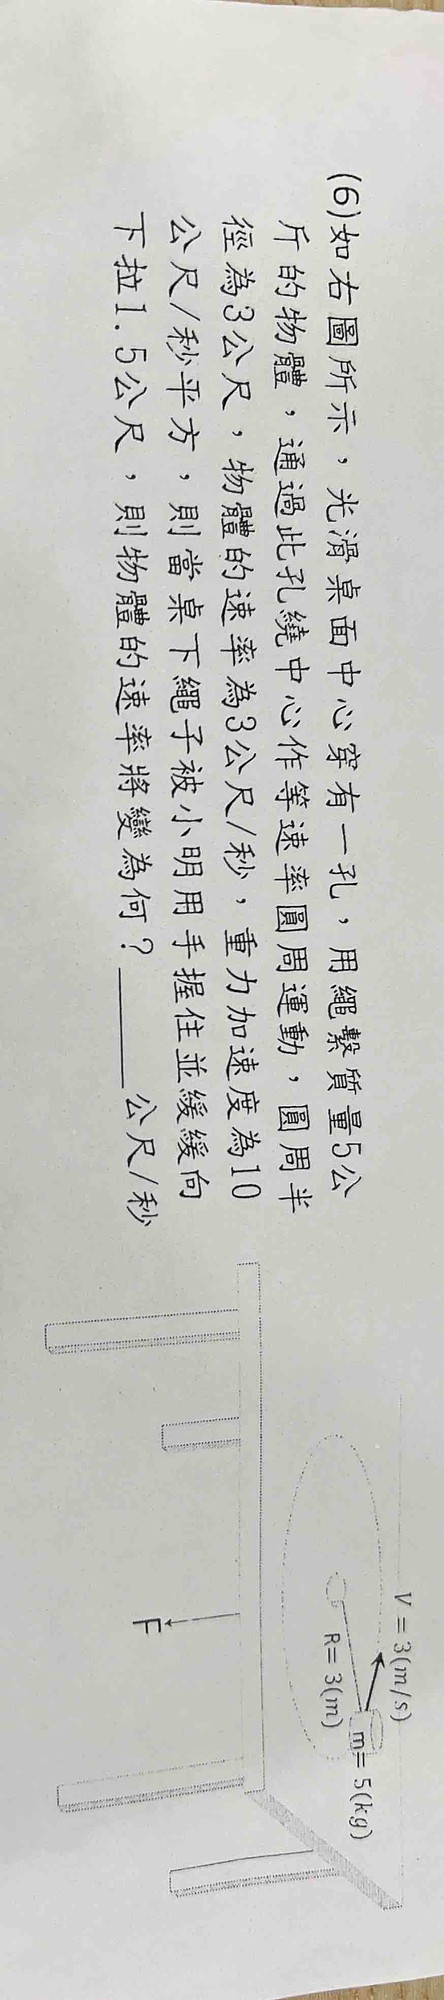 (6)如右圖所示，光滑桌面中心穿有一孔，用繩繫質量5公
斤的物體，通過此孔繞中心作等速率圓周運動，圓周半
徑為3公尺，物體的速率為3公尺/秒，重力加速度為10
公尺/秒平方，則當桌下繩子被小明用手握住並緩緩向
下拉1.5公尺，則物體的速率將變為何？______公尺/秒
V = 3(m/s)
m= 5(kg)
R= 3(m)
F